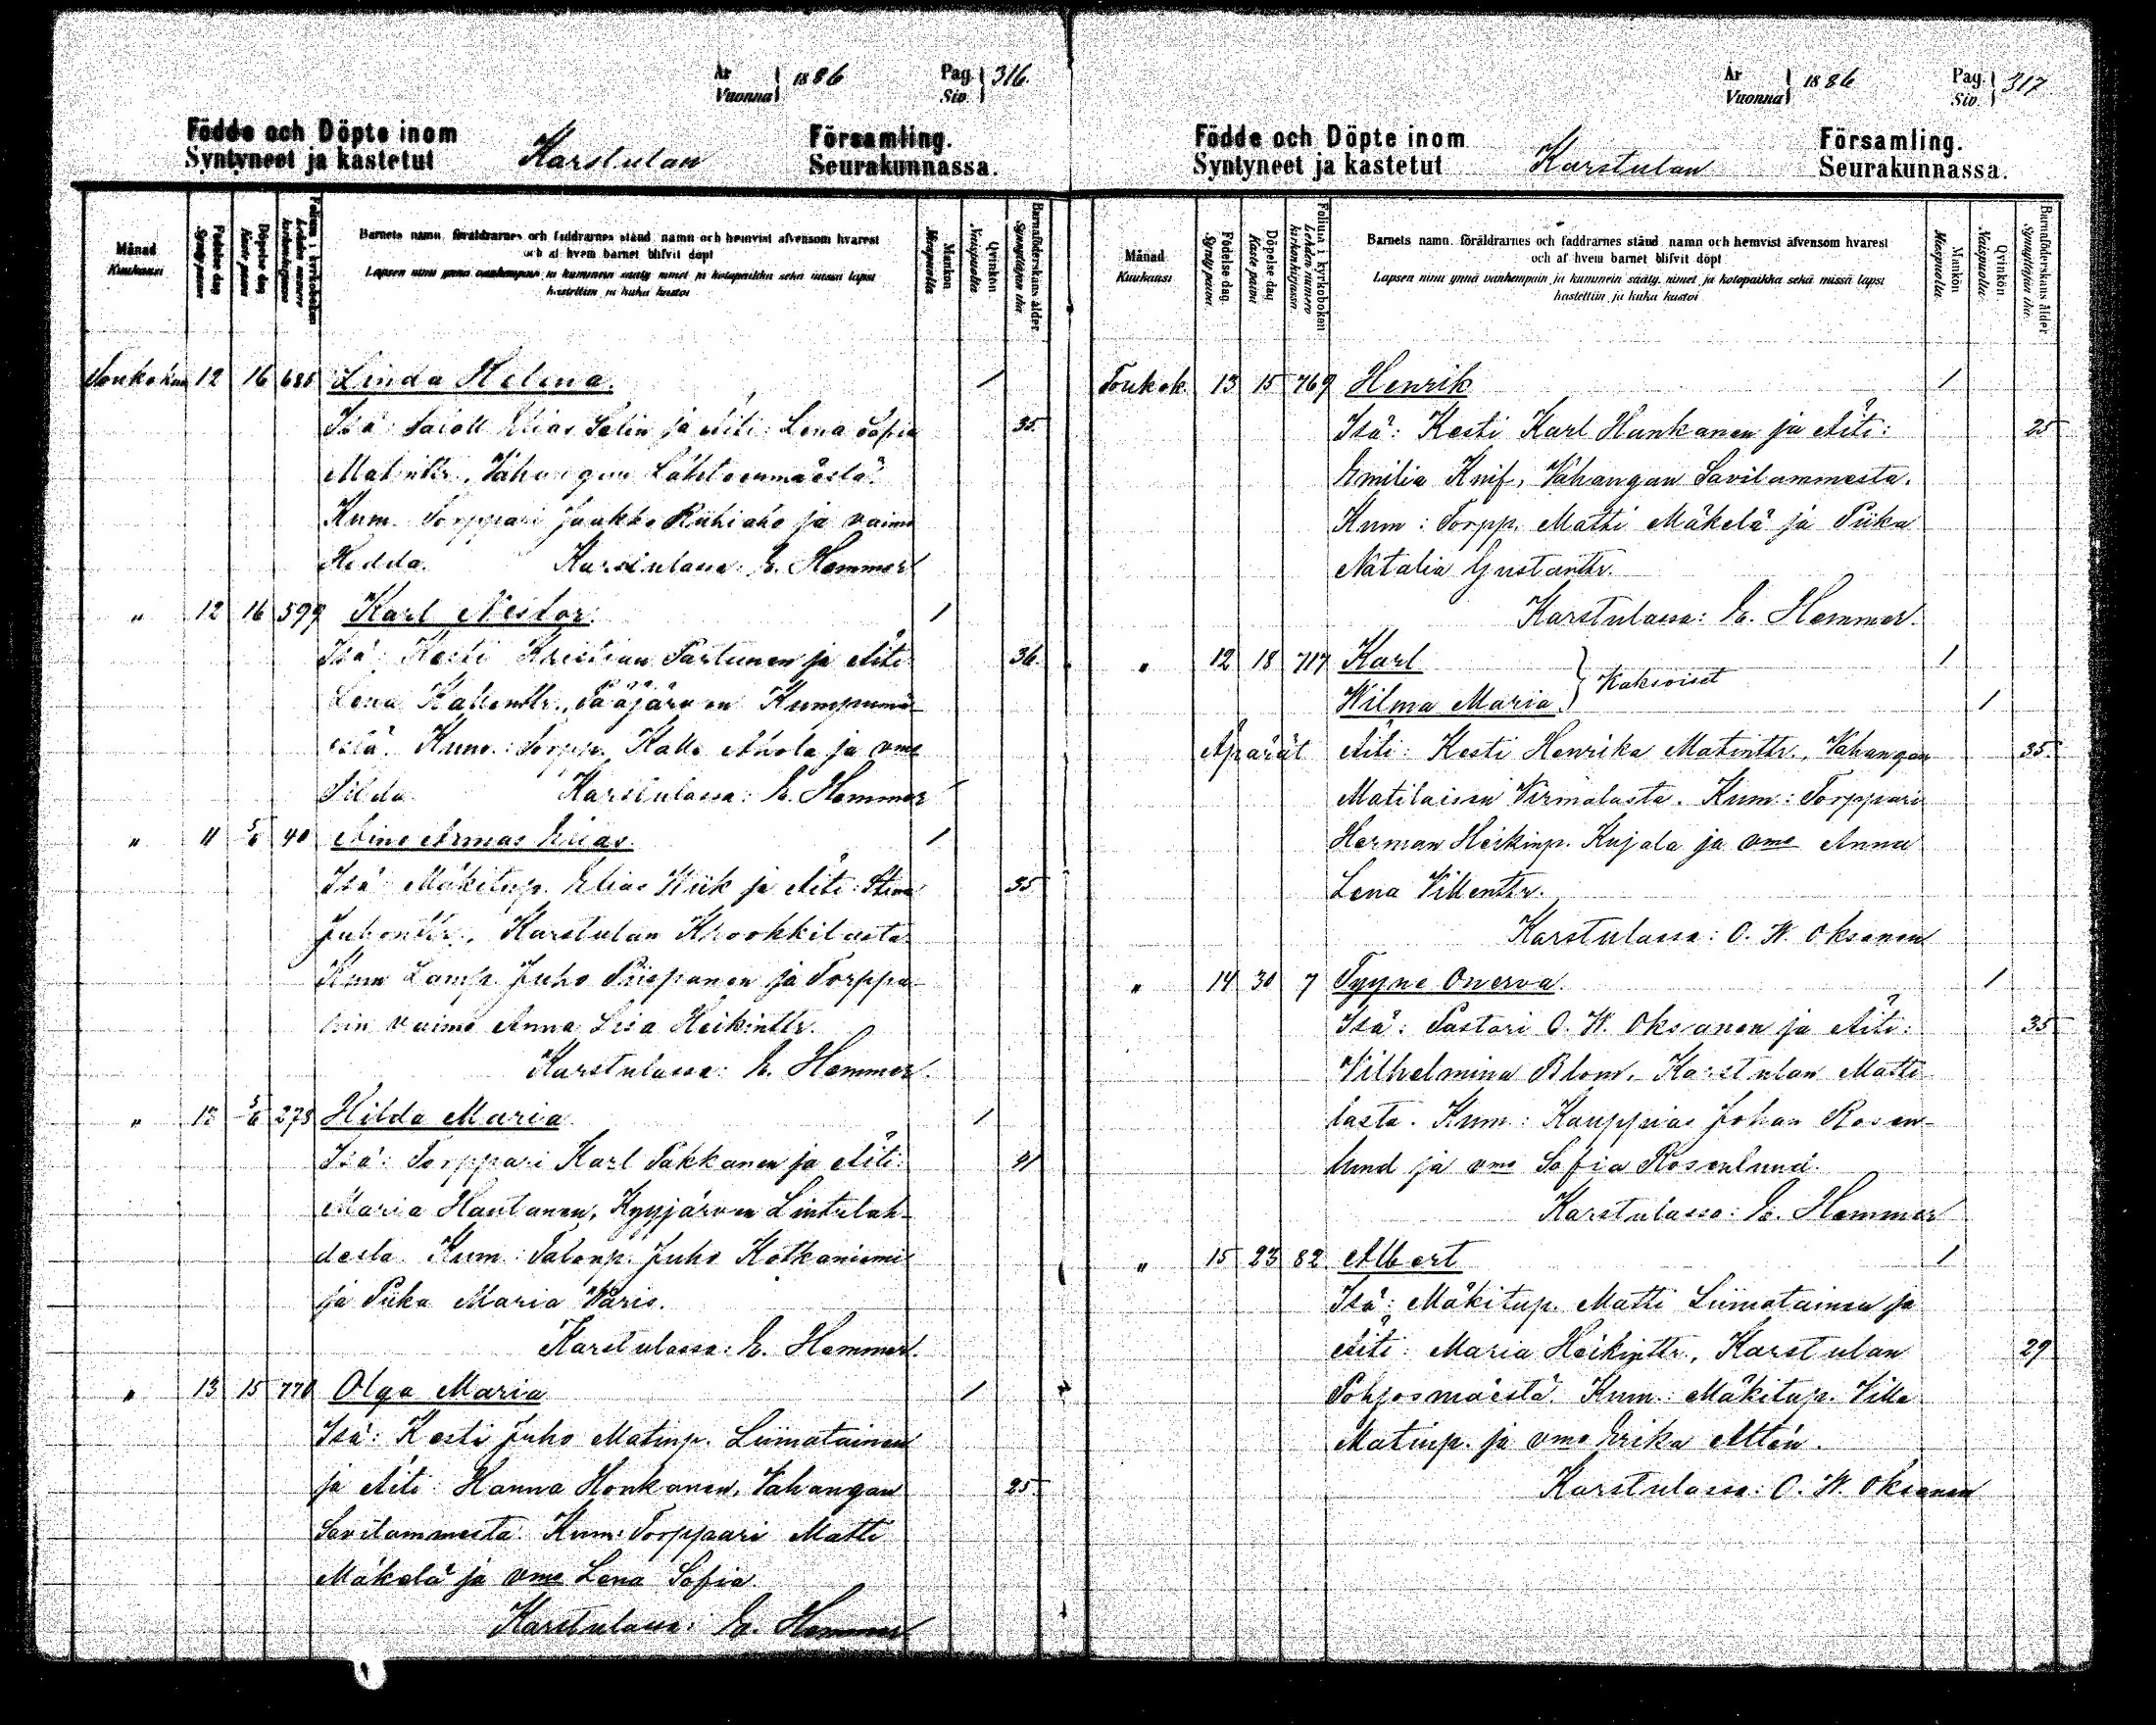 År
Vuonna } 1886
Pag.
Siv. } 316.
Födde och Döpte inom
Syntyneet ja kastetut
Karstulan
Församling.
Seurakunnassa.
Månad
Kuukausi
Födelse dag
Synty päivä
Döpelse dag
Kaste päivä
Folium i kyrkoboken
Lehden numero kirkonkirjassa
Barnets namn, föräldrarnes och faddrarnes stånd, namn och hemvist äfvensom hvarest
och af hvem barnet blifvit döpt
Lapsen nimi ynnä vanhempain ja kummein sääty, nimet ja kotopaikka sekä missä lapsi
kastettiin ja kuka kastoi
Mankön
Miespuolta
Qvinkön
Naispuolta
Barnaföderskans ålder
Synnyttäjän ikä
Toukokuu 12 16 688 Linda Helena. 1
Isä: Elias Salin ja Äiti: Lena Sofia 35.
Matintr., Vahangan Lähteenmäestä.
Kum. Torppari Jaakko Riihiaho ja vaimo
Hedda. Karstulassa: E. Hemmer
" 12 16 599 Karl Nestor. 1
Isä: Kesti Kristian Partunen ja Äiti: 36.
Lena Kallenttr., Pääjärven Kumpumä-
estä. Kum.: Torpp. Kalle Ahola ja vmo
Karstulassa: E. Hemmer
" 11 5/6 40 Aino Armas Elias. 1
Isä: Mäkitup. Elias Wiik ja Äiti: Stina 35
Juhonttr., Karstulan Krookkilasta
Kum Lamp. Juho Piispanen ja Torppa-
rin vaimo Anna Lisa Heikinttr.
Karstulassa: E. Hemmer.
" 5/6 275 Hilda Maria 1
Isä: Torppari Karl Pakkanen ja Äiti: 41
Maria Hautanen, Kyyjärven Lintulah-
desta. Kum: Talonp. Juho Kotkaniemi
ja Piika Maria Varis.
Karstulassa: E. Hemmer.
" 13 15 770 Olga Maria 1
Isä: Kesti Juho Matinp. Liimatainen
ja Äiti: Hanna Honkanen, Vahangan 25.
Savilammesta. Kum: Torppari Matti
Mäkelä ja vmo Lena Sofia.
Karstulassa: E. Hemmer
År
Vuonna } 1886
Pag.
Siv. } 317
Födde och Döpte inom
Syntyneet ja kastetut
Karstulan
Församling.
Seurakunnassa.
Månad
Kuukausi
Födelse dag
Synty päivä
Döpelse dag
Kaste päivä
Folium i kyrkoboken
Lehden numero kirkonkirjassa
Barnets namn, föräldrarnes och faddrarnes stånd, namn och hemvist äfvensom hvarest
och af hvem barnet blifvit döpt
Lapsen nimi ynnä vanhempain ja kummein sääty, nimet ja kotopaikka sekä missä lapsi
kastettiin ja kuka kastoi
Mankön
Miespuolta
Qvinkön
Naispuolta
Barnaföderskans ålder
Synnyttäjän ikä
Toukok. 13 15 769 Henrik 1
Isä: Kesti Karl Hankanen ja Äiti: 25
Emilia Knif, Vahangan Savilammesta.
Kum: Torpp. Matti Mäkelä ja Piika
Natalia Gustanttr.
Karstulassa: E. Hemmer.
" 12 18 717 Karl 1
Wilma Maria } Kaksoiset 1
Äpärät Äiti: Kesti Henrika Matinttr., Vahangan 35.
Matilaisen Virmalasta. Kum: Torppari
Herman Heikinp. Kujala ja vmo Anna
Lena Villenttr.
Karstulassa: O. W. Oksanen
" 14 30 7 Tyyne Onerva. 1
Isä: Pastori O. W. Oksanen ja Äiti: 35
Vilhelmina Blom, Karstulan Matti-
lasta. Kum: Kauppias Johan Rosen-
lund ja vmo Sofia Rosenlund.
Karstulassa: E. Hemmer
" 15 23 82 Albert 1
Isä: Mäkitup. Matti Liimatainen ja
Äiti: Maria Heikinttr., Karstulan 29
Pohjosmäestä. Kum: Mäkitup. Ville
Matinp. ja vmo Erika Altén.
Karstulassa: O. W. Oksanen